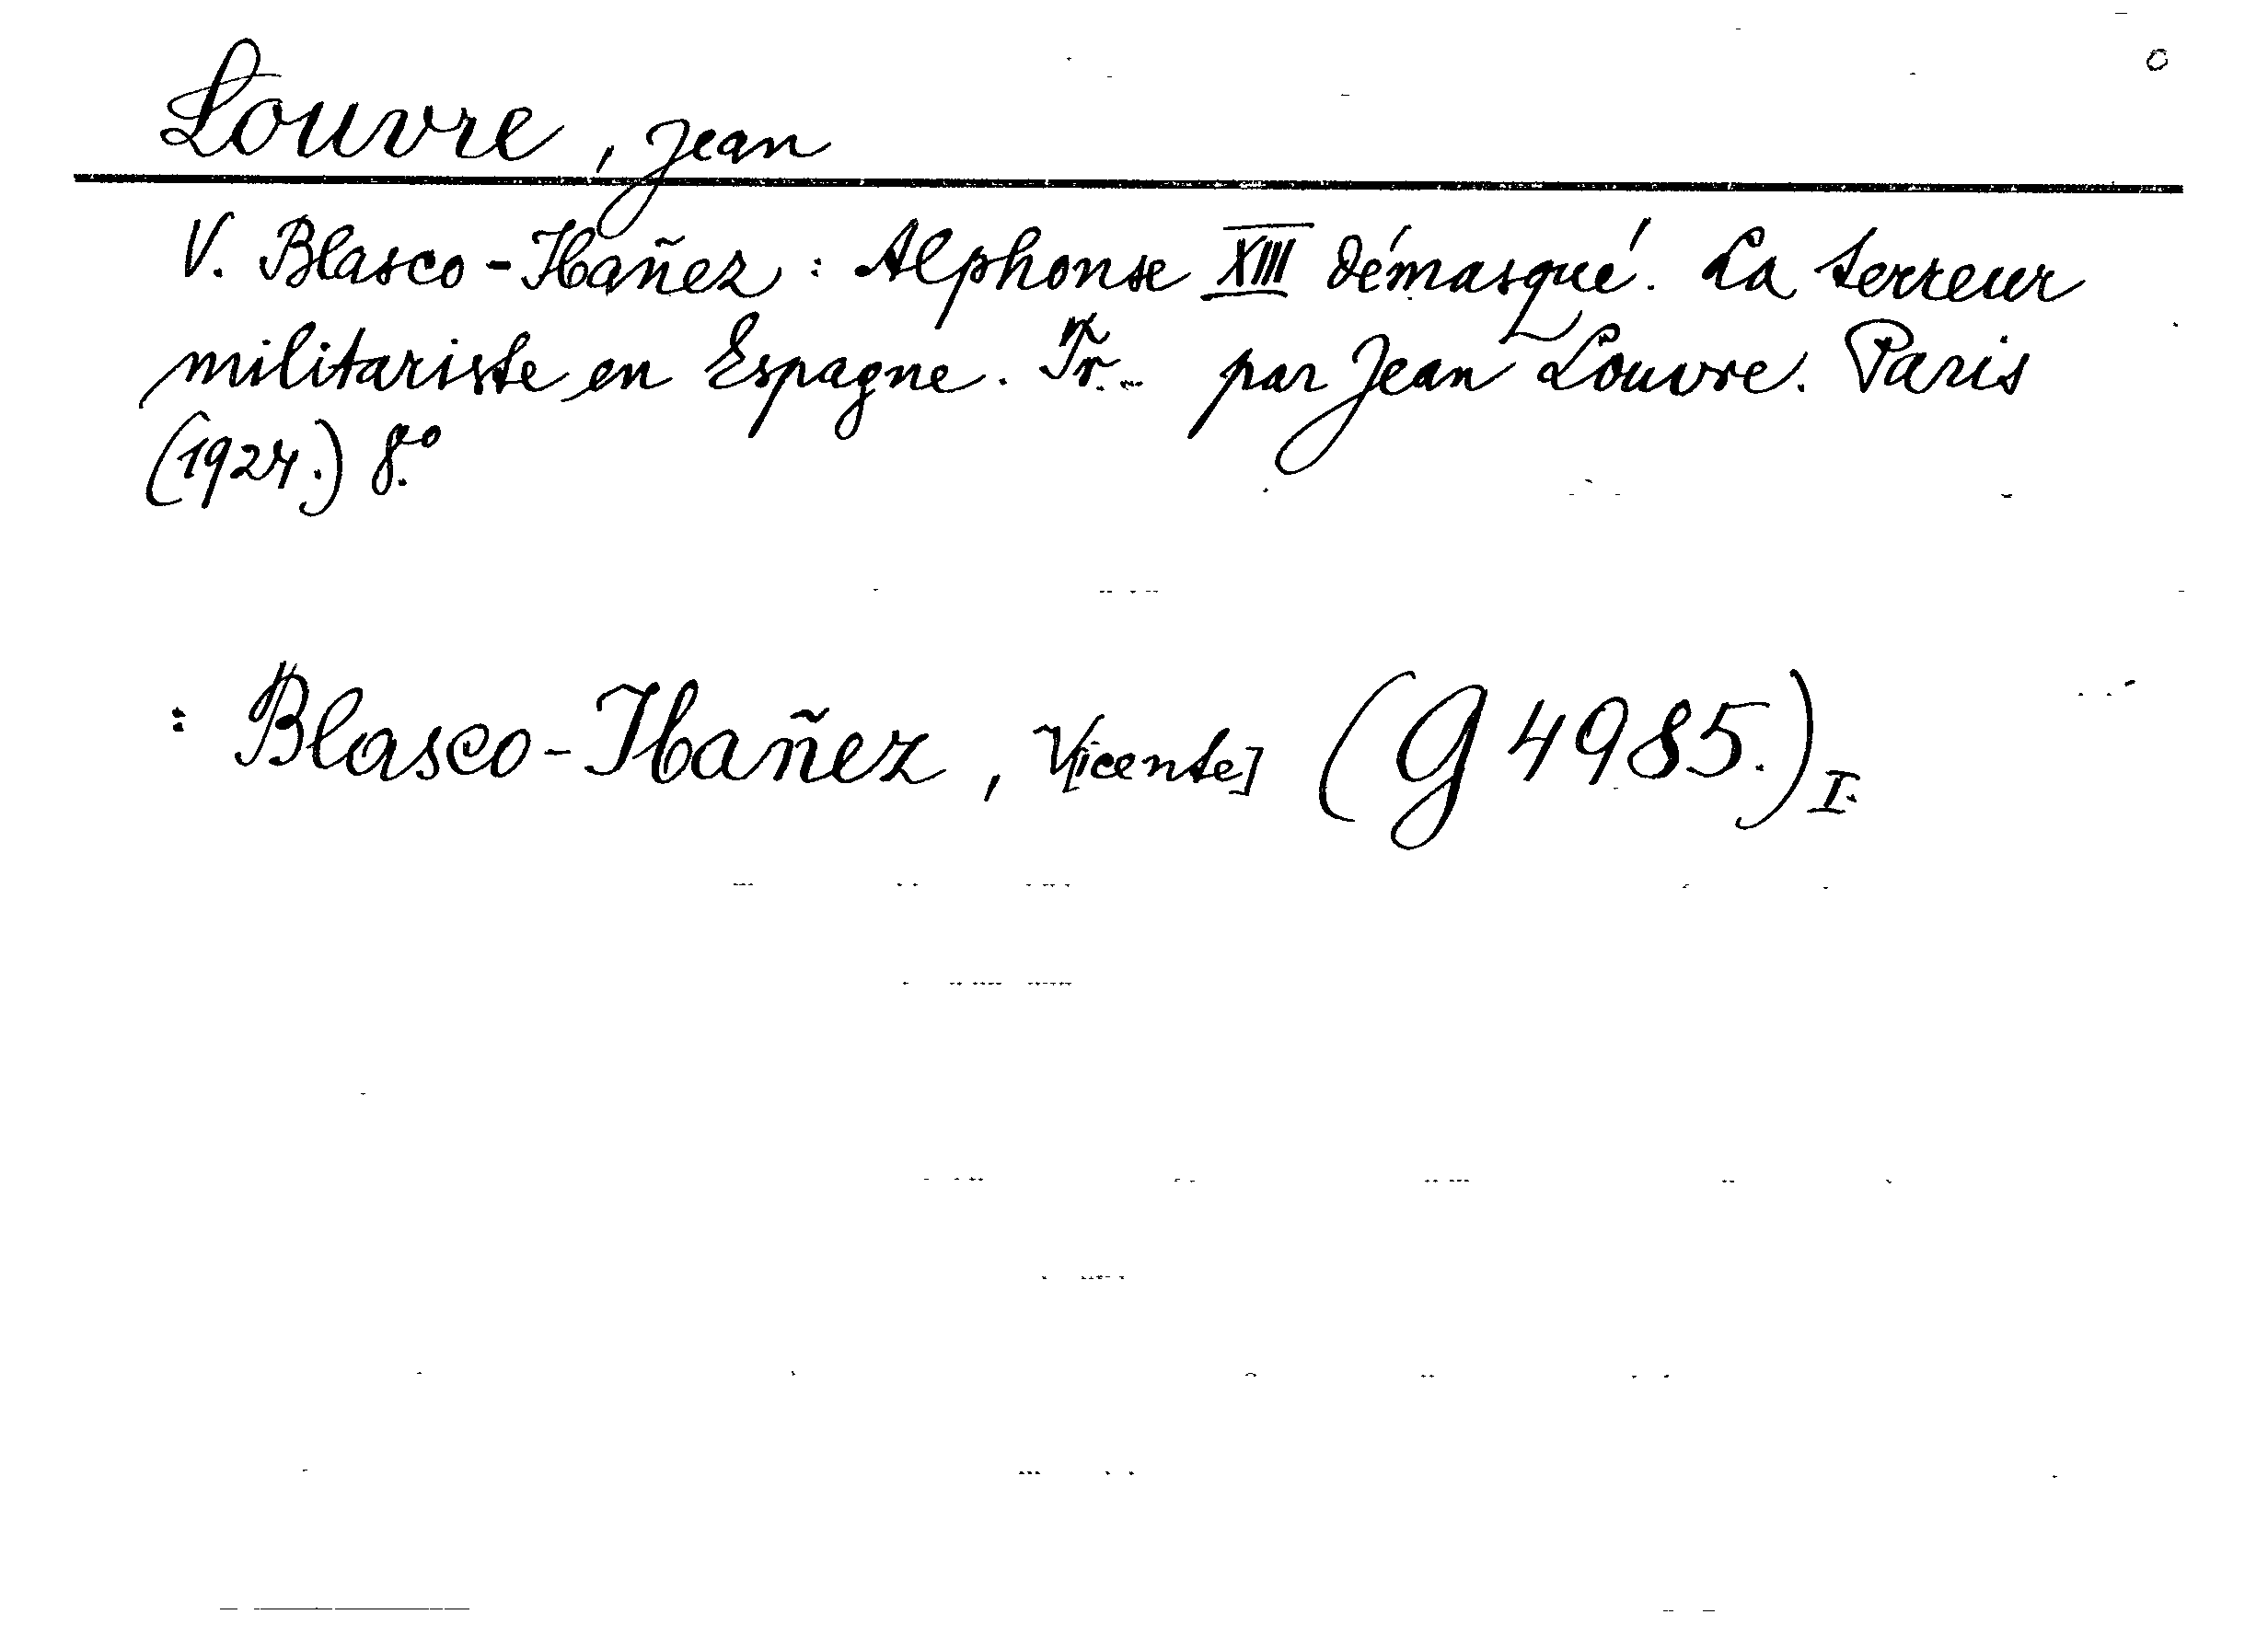 Louvre, Jean
V. Blasco-Ibañez: Alphonse XIII démasqué. La terreur
militariste en Espagne. Tr... par Jean Louvre. Paris
(1924.) 8.º
: Blasco-Ibañez, V[icente] (G 4985.) I.